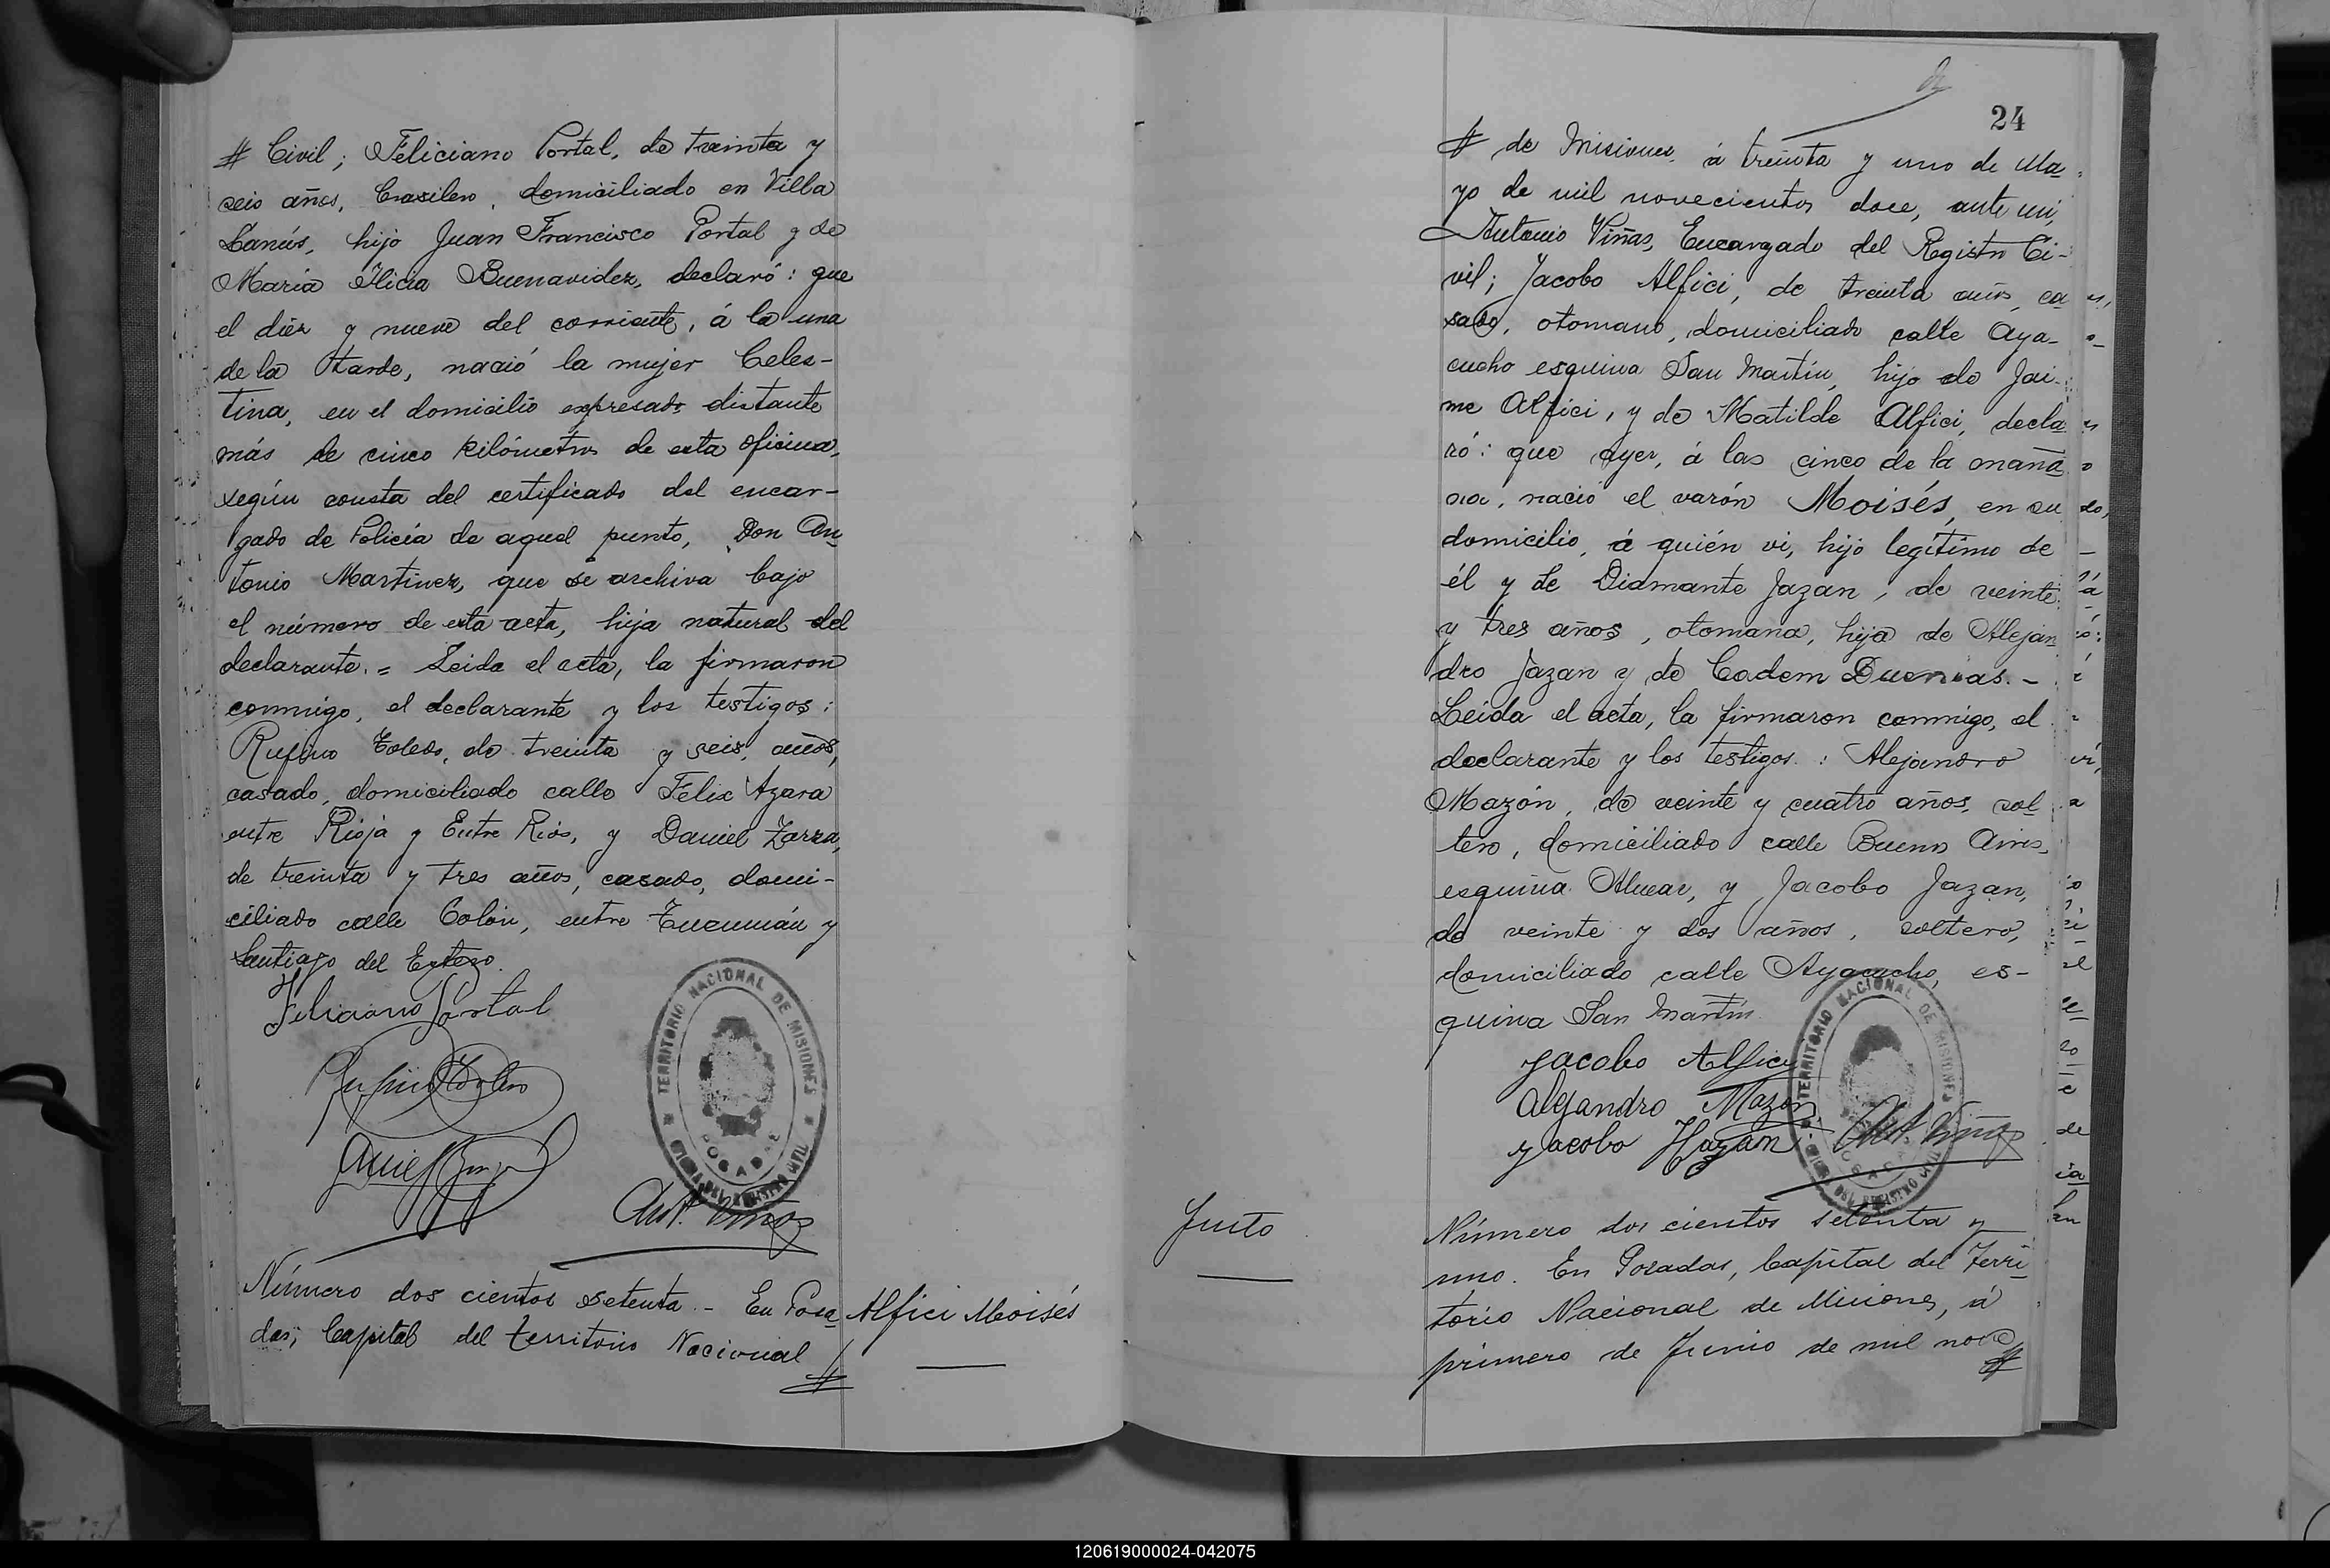 # Civil; Feliciano Portal, de treinta y
seis años, brasilero, domiciliado en Villa
Lanús, hijo Juan Francisco Portal y de
María Alicia Buenavidez, declaró: que
el diéz y nueve del corriente, á la una
de la tarde, nació la mujer Celes-
tina, en el domicilio expresado distante
más de cinco kilómetros de esta oficina,
según consta del certificado del encar-
gado de Policía de aquel punto, Don An-
tonio Martinez, que se archiva bajo
el número de esta acta, hija natural del
declarante. = Leida el acta, la firmaron
conmigo, el declarante y los testigos:
Rufino Toledo, de treinta y seis, años,
casado, domiciliado calle Felix Azara
entre Rioja y Entre Rios, y Daniel Zarza,
de treinta y tres años, casado, domi-
ciliado calle Colón, entre Tucumán y
Santiago del Estero.
Feliciano Portal
Rufino Toledo
Ant. Viñas
TERRITORIO NACIONAL DE MISIONES
POSADAS
DEL REGISTRO CIVIL
Número dos cientos setenta. - En Posa-
das, Capital del territorio Nacional #
Alfici Moisés
24
# de Misiones, á treinta y uno de Ma-
yo de mil novecientos doce, ante mi,
Antonio Viñas, Encargado del Registro Ci-
vil; Jacobo Alfici, de treinta años, ca
sado, otomano, domiciliado calle Aya-
cucho esquina San Martín, hijo de Jai-
me Alfici, y de Matilde Alfici, decla
ró: que ayer, á las cinco de la maña
na, nació el varón Moisés, en su
domicilio, á quién vi, hijo legítimo de
él y de Diamante Jazan, de veinte
y tres años, otomana, hija de Alejan
dro Jazan y de Cadem Duenias. -
Leida el acta, la firmaron conmigo, el
declarante y los testigos: Alejandro
Mazón, de veinte y cuatro años, sol
tero, domiciliado calle Buenos Aires,
esquina Alvear, y Jacobo Jazan,
de veinte y dos años, soltero,
domiciliado calle Ayacucho, es-
quina San Martín.
Jacobo Alfici
Alejandro Mazon
Jacobo Hazan
Ant. Viñas
TERRITORIO NACIONAL DE MISIONES
POSADAS
DEL REGISTRO CIVIL
Justo
Número dos cientos setenta y
uno. En Posadas, Capital del Terri-
torio Nacional de Misiones, á
primero de Junio de mil nove #
120619000024-042075